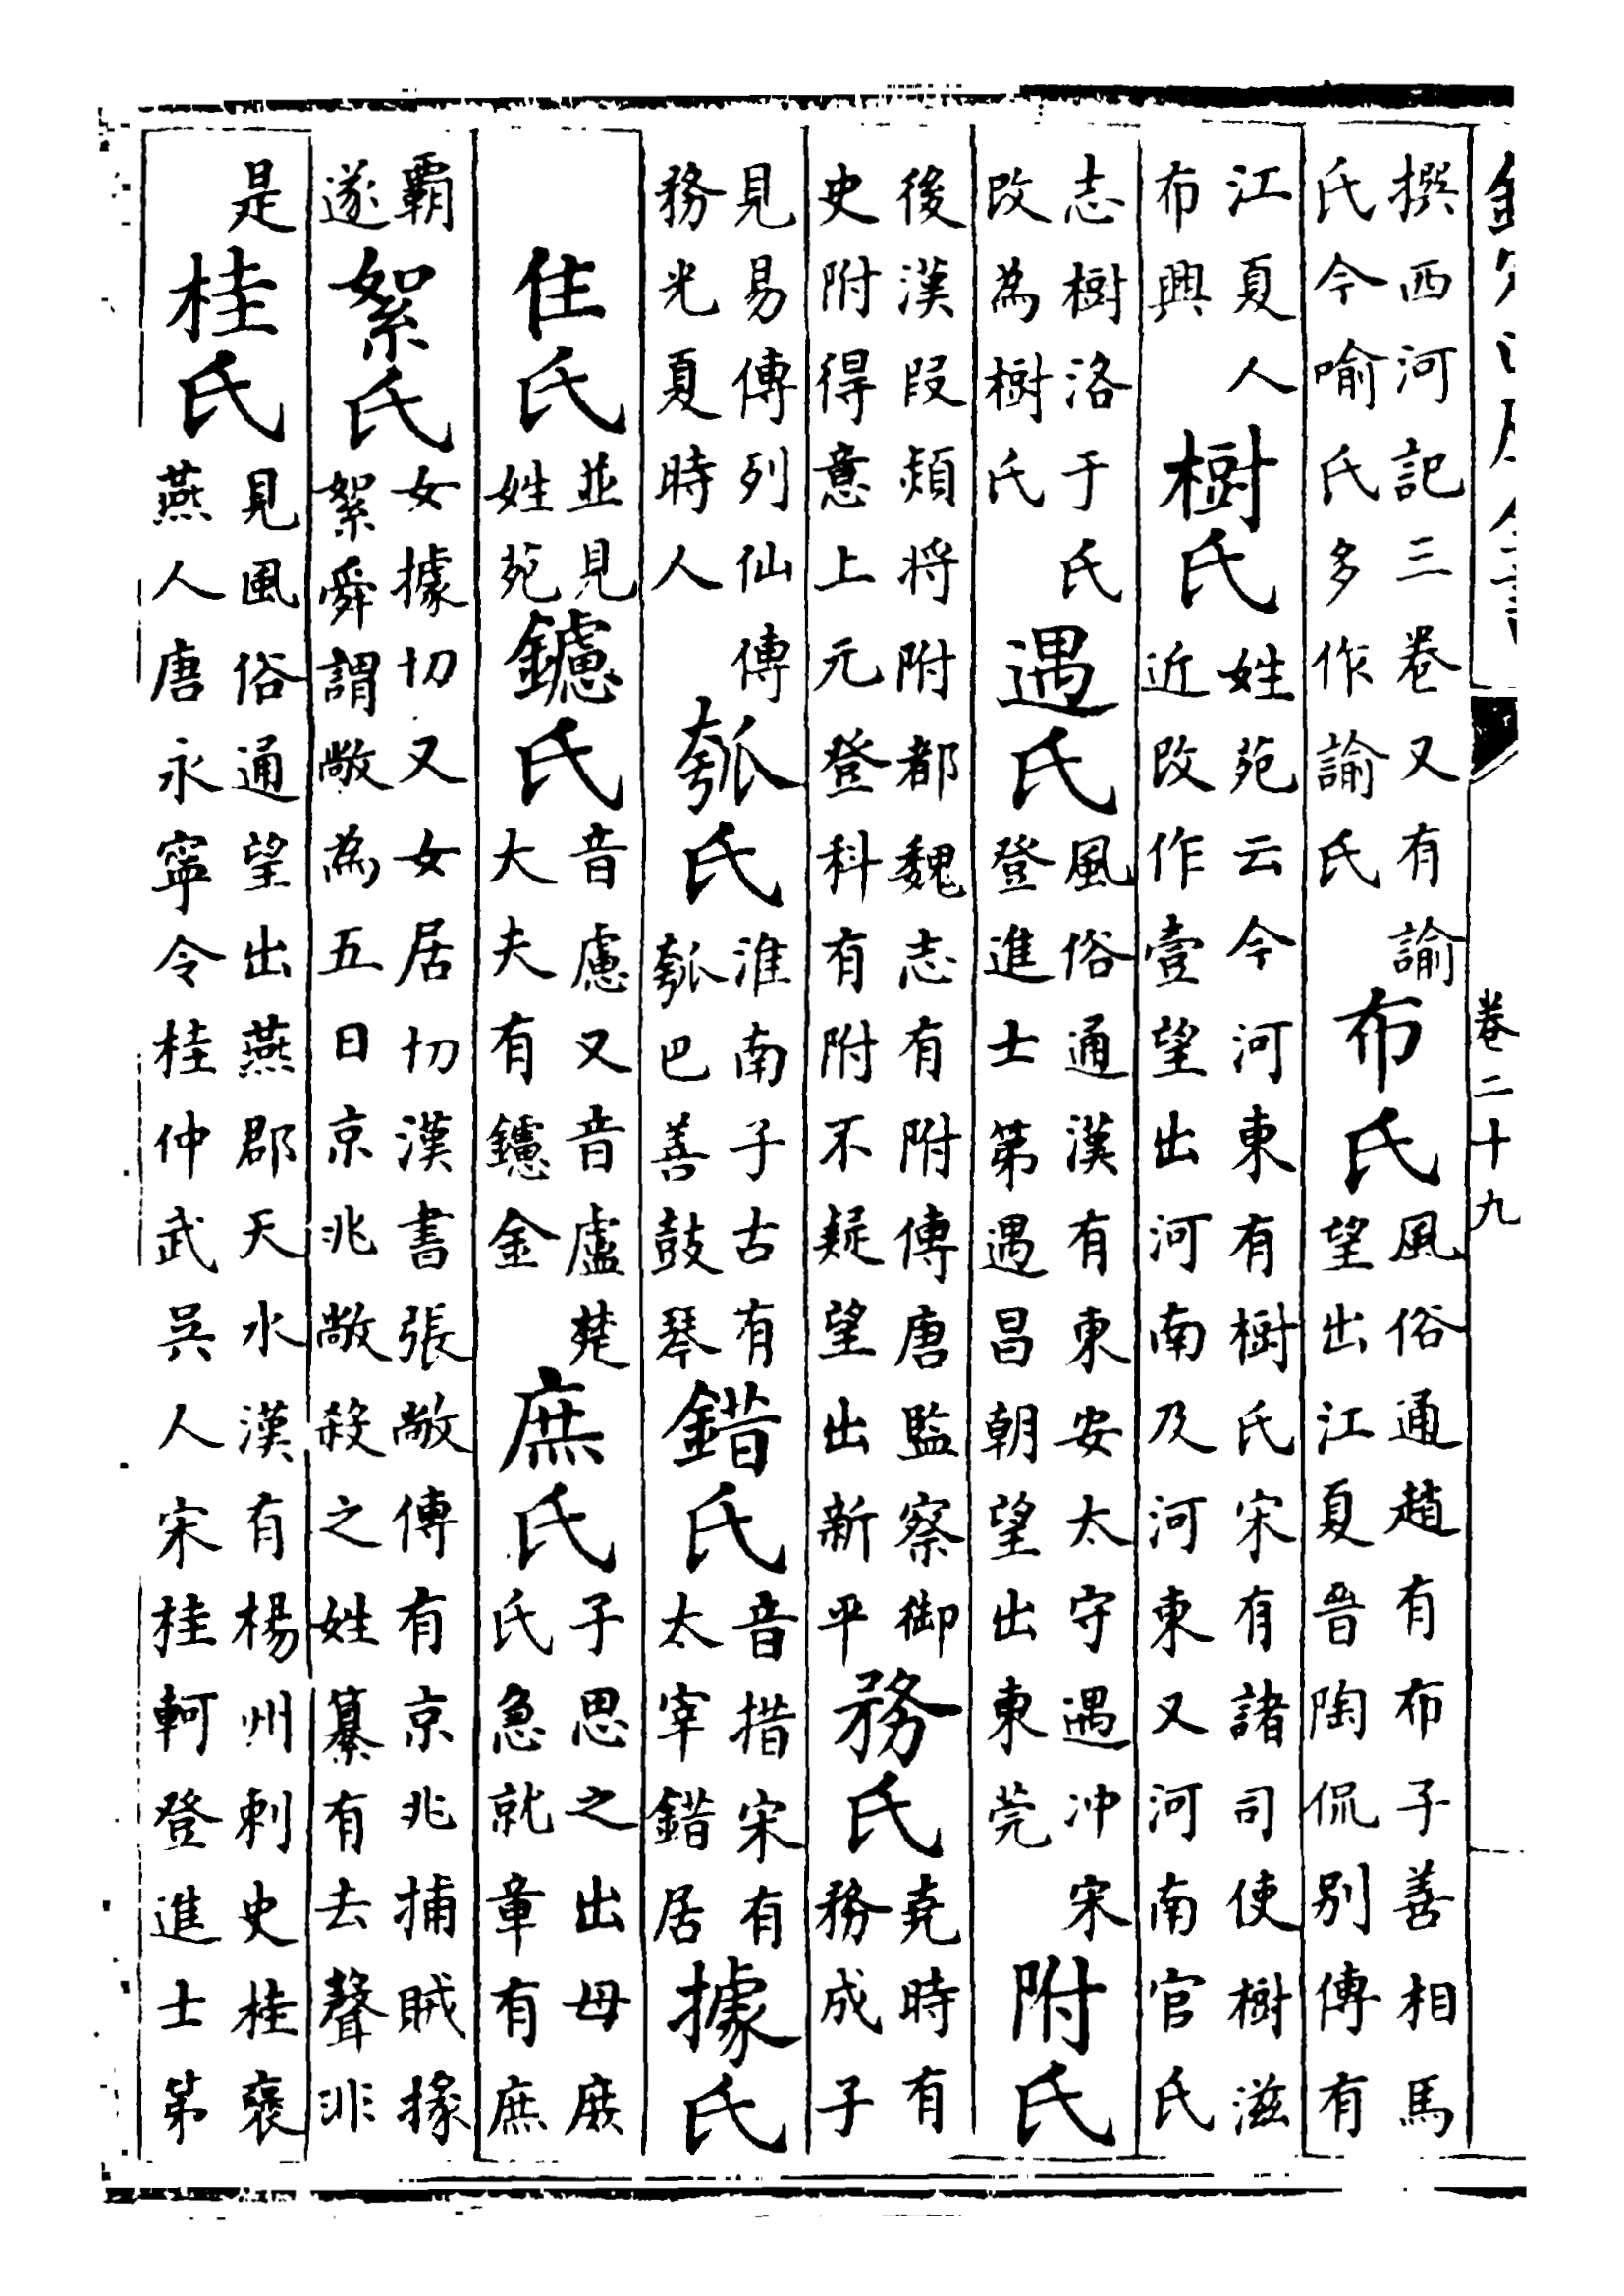 卷二十九
撰西河記三卷又有諭
氏今喻氏多作諭氏
布氏
風俗通趙有布子善相馬
望出江夏晉陶侃別傳有
江夏人
布興
樹氏
姓苑云今河東有樹氏宋有諸司使樹滋
近改作壹望出河南及河東又河南官氏
志樹洛于氏
改為樹氏
遇氏
風俗通漢有東安太守遇冲宋
登進士第遇昌朝望出東莞
附氏
後漢段熲將附都魏志有附傳唐監察御
史附得意上元登科有附不疑望出新平
務氏
堯時有
務成子
見易傳列仙傳
務光夏時人
瓠氏
淮南子古有
瓠巴善鼓琴
錯氏
音措宋有
太宰錯居
據氏
住氏
並見
姓苑
鑢氏
音慮又音盧楚
大夫有鑢金
庶氏
子思之出母庶
氏急就章有庶
霸
遂
絮氏
女據切又女居切漢書張敞傳有京兆捕賊掾
絮舜謂敞為五日京兆敞殺之姓纂有去聲非
是
桂氏
見風俗通望出燕郡天水漢有楊州刺史桂褒
燕人唐永寧令桂仲武吳人宋桂軻登進士第